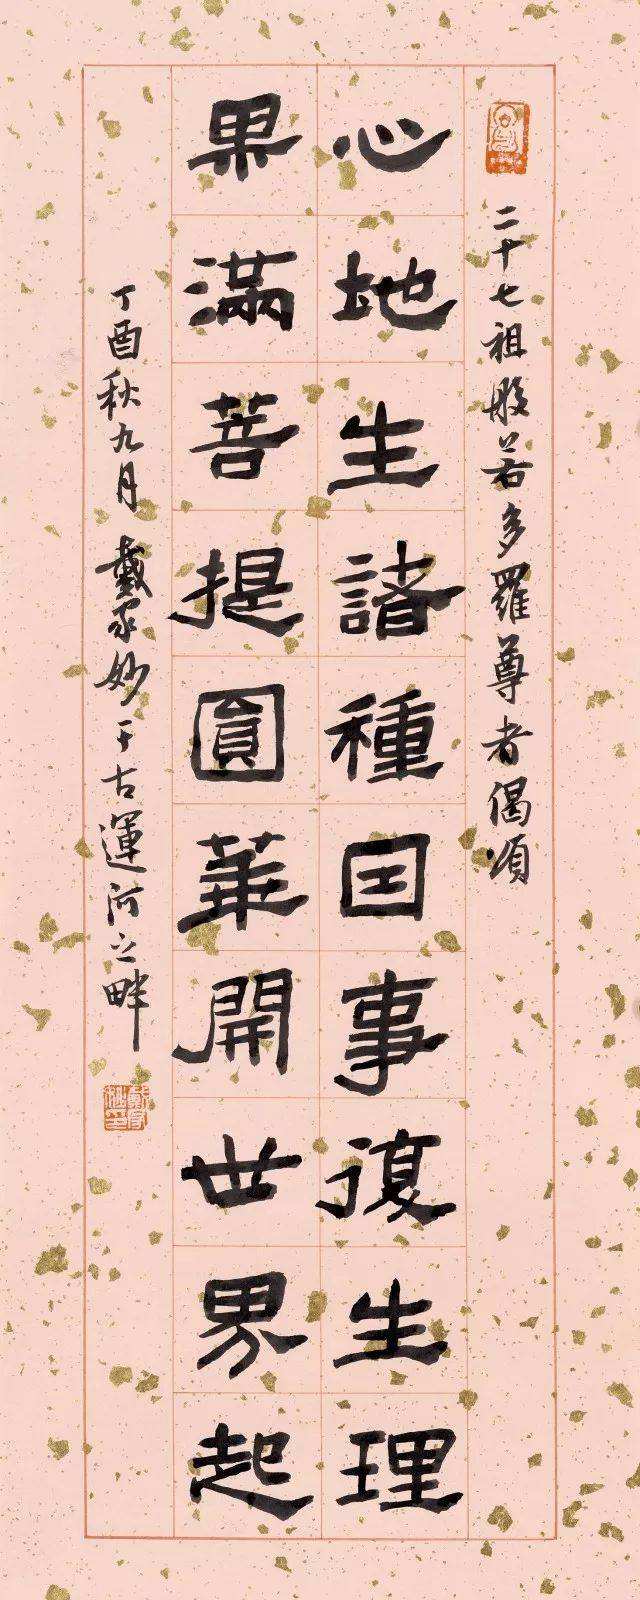 二十七祖般若多羅尊者偈頌
心地生諸種因事復生理
果滿菩提圓華開世界起
丁酉秋九月戴家妙于古運河之畔